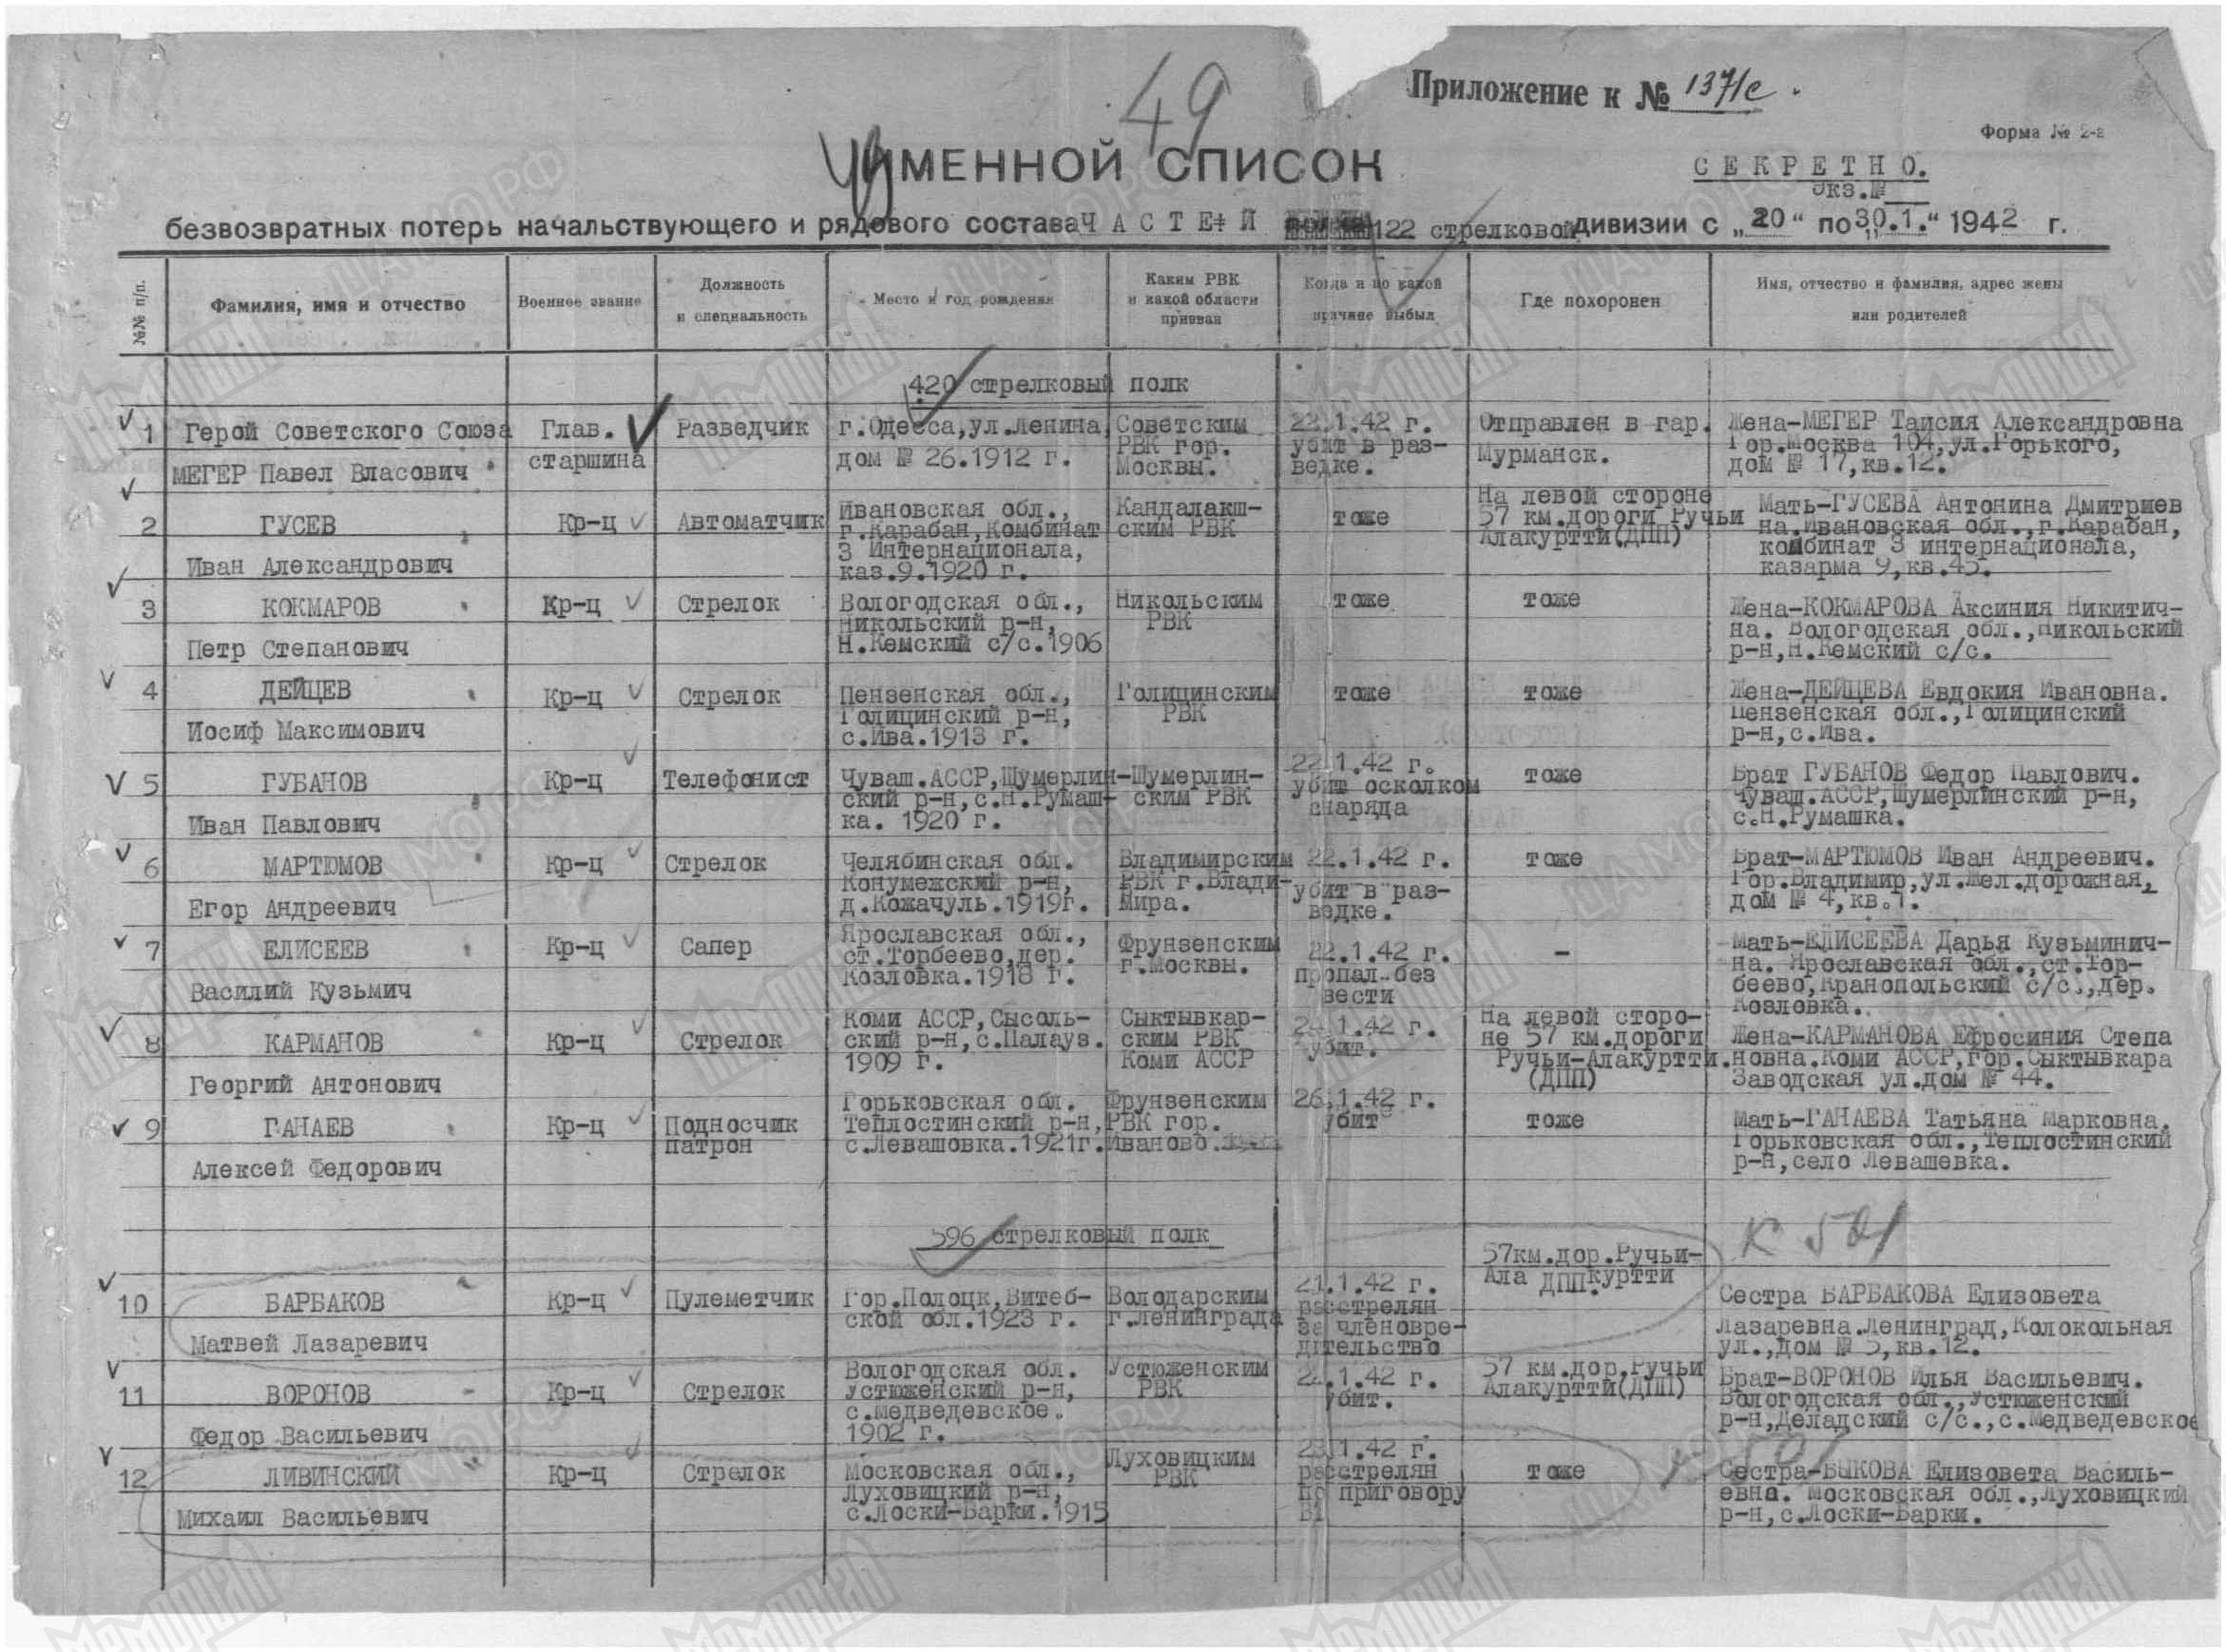 49
Приложение к № 1371с.
Форма № 2-а
ИМЕННОЙ СПИСОК
СЕКРЕТНО.
Экз.№
безвозвратных потерь начальствующего и рядового состава ЧАСТЕЙ 122 стрелковой дивизии с „20“ по „30.1.“ 1942 г.
№№ п/п.
Фамилия, имя и отчество
Военное звание
Должность
и специальность
Место и год рождения
Каким РВК
и какой области
призван
Когда и по какой
причине выбыл
Где похоронен
Имя, отчество и фамилия, адрес жены
или родителей
420 стрелковый полк
1
Герой Советского Союза
МЕГЕР Павел Власович
Глав.
старшина
Разведчик
г.Одесса,ул.Ленина,
дом № 26.1912 г.
Советским
РВК гор.
Москвы.
22.1.42 г.
убит в раз-
ведке.
Отправлен в гар.
Мурманск.
Жена-МЕГЕР Таисия Александровна
Гор.Москва 104,ул.Горького,
дом № 17,кв.12.
2
ГУСЕВ
Иван Александрович
Кр-ц
Автоматчик
Ивановская обл.,
г.Карабан,Комбинат
3 Интернационала,
каз.9.1920 г.
Кандалакш-
ским РВК
тоже
На левой стороне
57 км.дороги Ручьи
Алакуртти(ДПП)
Мать-ГУСЕВА Антонина Дмитриев
на.Ивановская обл.,г.Карабан,
комбинат 3 интернационала,
казарма 9,кв.45.
3
КОКМАРОВ
Петр Степанович
Кр-ц
Стрелок
Вологодская обл.,
Никольский р-н,
Н.Кемский с/с.1906
Никольским
РВК
тоже
тоже
Жена-КОКМАРОВА Аксиния Никитич-
на. Вологодская обл.,Никольский
р-н,Н.Кемский с/с.
4
ДЕЙЦЕВ
Иосиф Максимович
Кр-ц
Стрелок
Пензенская обл.,
Голицинский р-н,
с.Ива.1913 г.
Голицинским
РВК
тоже
тоже
Жена-ДЕЙЦЕВА Евдокия Ивановна.
Пензенская обл.,Голицинский
р-н,с.Ива.
5
ГУБАНОВ
Иван Павлович
Кр-ц
Телефонист
Чуваш.АССР,Шумерлин-
ский р-н,с.Н.Румаш-
ка. 1920 г.
Шумерлин-
ским РВК
22.1.42 г.
убит осколком
снаряда
тоже
Брат ГУБАНОВ Федор Павлович.
Чуваш.АССР,Шумерлинский р-н,
с.Н.Румашка.
6
МАРТЮМОВ
Егор Андреевич
Кр-ц
Стрелок
Челябинская обл.
Конумежский р-н,
д.Кожачуль.1919г.
Владимирским
РВК г.Влади-
мира.
22.1.42 г.
убит в раз-
ведке.
тоже
Брат-МАРТЮМОВ Иван Андреевич.
Гор.Владимир,ул.Жел.дорожная,
дом № 4,кв.1.
7
ЕЛИСЕЕВ
Василий Кузьмич
Кр-ц
Сапер
Ярославская обл.,
ст.Торбеево,дер.
Козловка.1918 г.
Фрунзенским
г.Москвы.
22.1.42 г.
пропал без
вести
-
Мать-ЕЛИСЕЕВА Дарья Кузьминич-
на. Ярославская обл.,ст.Тор-
беево,Кранопольский с/с.,дер.
Козловка.
8
КАРМАНОВ
Георгий Антонович
Кр-ц
Стрелок
Коми АССР,Сысоль-
ский р-н,с.Палауз.
1909 г.
Сыктывкар-
ским РВК
Коми АССР
24.1.42 г.
убит.
На левой сторо-
не 57 км.дороги
Ручьи-Алакуртти.
(ДПП)
Жена-КАРМАНОВА Ефросиния Степа
новна.Коми АССР,гор.Сыктывкара
Заводская ул.дом № 44.
9
ГАНАЕВ
Алексей Федорович
Кр-ц
Подносчик
патрон
Горьковская обл.
Теплостинский р-н,
с.Левашовка.1921г.
Фрунзенским
РВК гор.
Иваново.
26.1.42 г.
убит
тоже
Мать-ГАНАЕВА Татьяна Марковна.
Горьковская обл.,Теплостинский
р-н,село Левашевка.
596 стрелковый полк
К 501
10
БАРБАКОВ
Матвей Лазаревич
Кр-ц
Пулеметчик
Гор.Полоцк,Витеб-
ской обл.1923 г.
Володарским
г.Ленинграда
21.1.42 г.
расстрелян
за членовре-
дительство
57км.дор.Ручьи-
Ала куртти
ДПП.
Сестра БАРБАКОВА Елизовета
Лазаревна.Ленинград,Колокольная
ул.,дом № 5,кв.12.
11
ВОРОНОВ
Федор Васильевич
Кр-ц
Стрелок
Вологодская обл.
Устюженский р-н,
с.Медведевское.
1902 г.
Устюженским
РВК
22.1.42 г.
убит.
57 км.дор.Ручьи
Алакуртти(ДПП)
Брат-ВОРОНОВ Илья Васильевич.
Вологодская обл.,Устюженский
р-н,Деладский с/с.,с.Медведевское
12
ЛИВИНСКИЙ
Михаил Васильевич
Кр-ц
Стрелок
Московская обл.,
Луховицкий р-н,
с.Лоски-Варки.1915
Луховицким
РВК
23.1.42 г.
расстрелян
по приговору
ВТ
тоже
Сестра-БЫКОВА Елизовета Василь-
евна. Московская обл.,Луховицкий
р-н,с.Лоски-Варки.